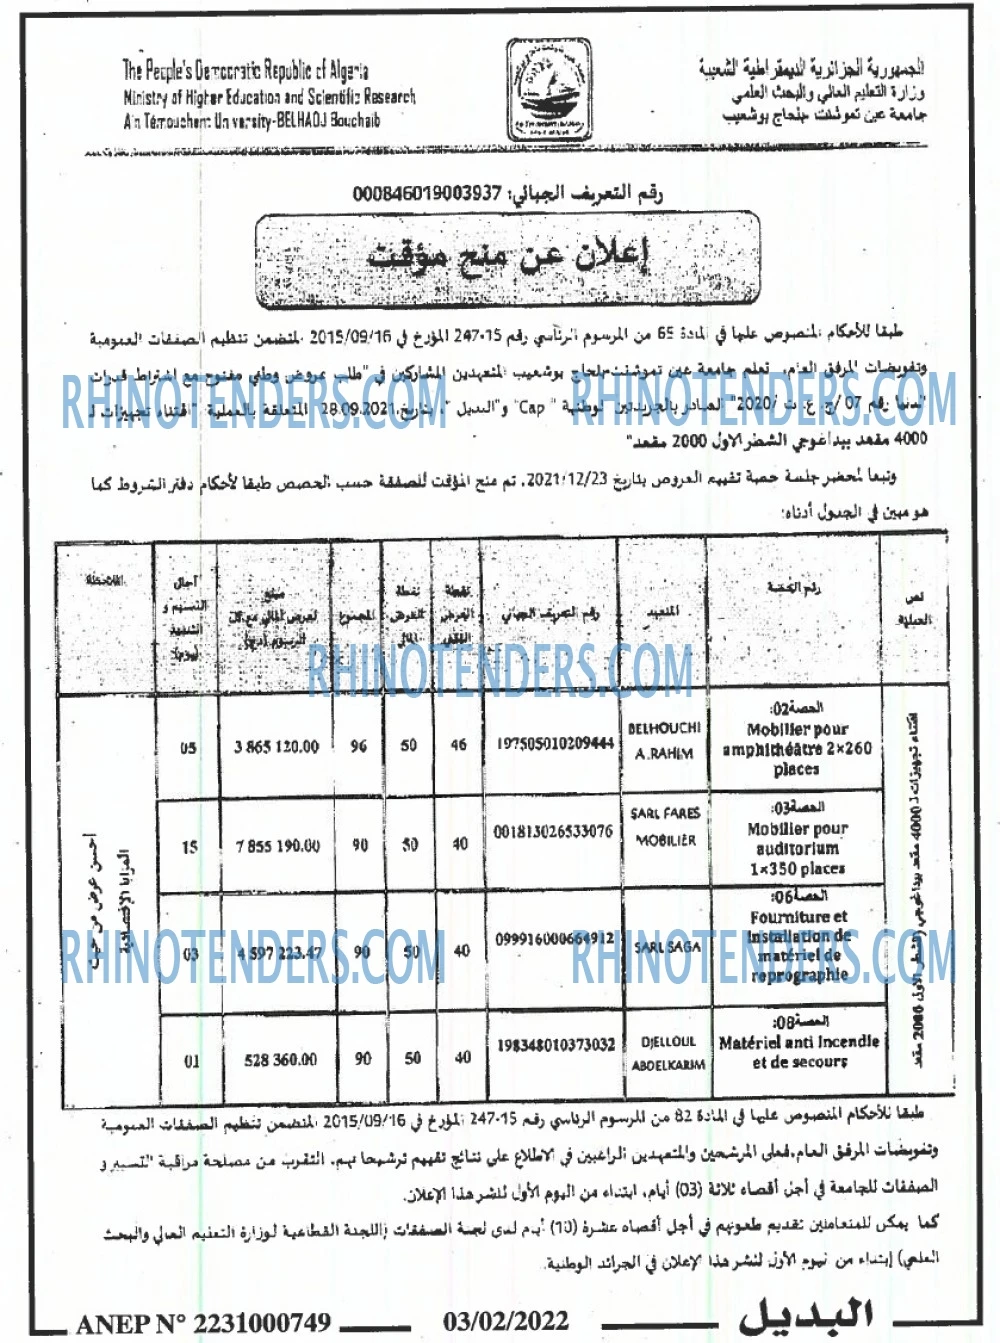 The People's Democratic Republic of Algeria
Ministry of Higher Education and Scientific Research
Ain Témouchent University-BELHADJ Bouchaib
الجمهورية الجزائرية الديمقراطية الشعبية
وزارة التعليم العالي والبحث العلمي
جامعة عين تموشنت بلحاج بوشعيب
رقم التعريف الجبائي: 000846019003937
إعلان عن منح مؤقت
طبقا للأحكام المنصوص عليها في المادة 65 من المرسوم الرئاسي رقم 15-247 المؤرخ في 2015/09/16 المتضمن تنظيم الصفقات العمومية
وتفويضات المرفق العام، تعلم جامعة عين تموشنت-بلحاج بوشعيب المتعهدين المشاركين في "طلب عروض وطني مفتوح مع اشتراط قدرات
دنيا رقم 07/ج. ع. ت /2020" الصادر بالجريدتين الوطنية "Cap" و"البديل"، بتاريخ 28.09.2021 المتعلقة بالعملية "اقتناء تجهيزات لـ
4000 مقعد بيداغوجي الشطر الاول 2000 مقعد"
وتبعا لمحضر جلسة حصة تقييم العروض بتاريخ 2021/12/23، تم منح المؤقت للصفقة حسب الحصص طبقا لأحكام دفتر الشروط كما
هو مبين في الجدول أدناه:
نص العملية
رقم الحصة
المتعهد
رقم التعريف الجبائي
نقطة العرض التقني
نقطة العرض المالي
المجموع
مبلغ العرض المالي مع كل الرسوم (دج)
آجال التسليم و التنفيذ (يوم)
الملاحظة
اقتناء تجهيزات لـ 4000 مقعد بيداغوجي (الشطر الاول 2000 مقعد
الحصة02:
Mobilier pour
amphithéâtre 2×260
places
BELHOUCHI
A.RAHIM
197505010209444
46
50
96
3 865 120.00
05
الحصة03:
Mobilier pour
auditorium
1×350 places
SARL FARES
MOBILIER
001813026533076
40
50
90
7 855 190.00
15
الحصة06:
Fourniture et
installation de
matériel de
reprographie
SARL SAGA
099916000664912
40
50
90
4 597 223.47
03
الحصة08:
Matériel anti Incendie
et de secours
DJELLOUL
ABDELKARIM
198348010373032
40
50
90
528 360.00
01
أحسن عرض من حيث
المزايا الإقتصادية
طبقا للأحكام المنصوص عليها في المادة 82 من المرسوم الرئاسي رقم 15-247 المؤرخ في 2015/09/16 المتضمن تنظيم الصفقات العمومية
وتفويضات المرفق العام، فعلى المرشحين والمتعهدين الراغبين في الاطلاع على نتائج تقييم ترشيحاتهم، التقرب من مصلحة مراقبة التسيير و
الصفقات للجامعة في أجل أقصاه ثلاثة (03) أيام، ابتداء من اليوم الأول لنشر هذا الإعلان.
كما يمكن للمتعاملين تقديم طعونهم في أجل أقصاه عشرة (10) أيام لدى لجنة الصفقات (اللجنة القطاعية لوزارة التعليم العالي والبحث
العلمي) إبتداء من اليوم الأول لنشر هذا الإعلان في الجرائد الوطنية.
ANEP N° 2231000749
03/02/2022
البديل
RHINOTENDERS.COM
RHINOTENDERS.COM
RHINOTENDERS.COM
RHINOTENDERS.COM
RHINOTENDERS.COM